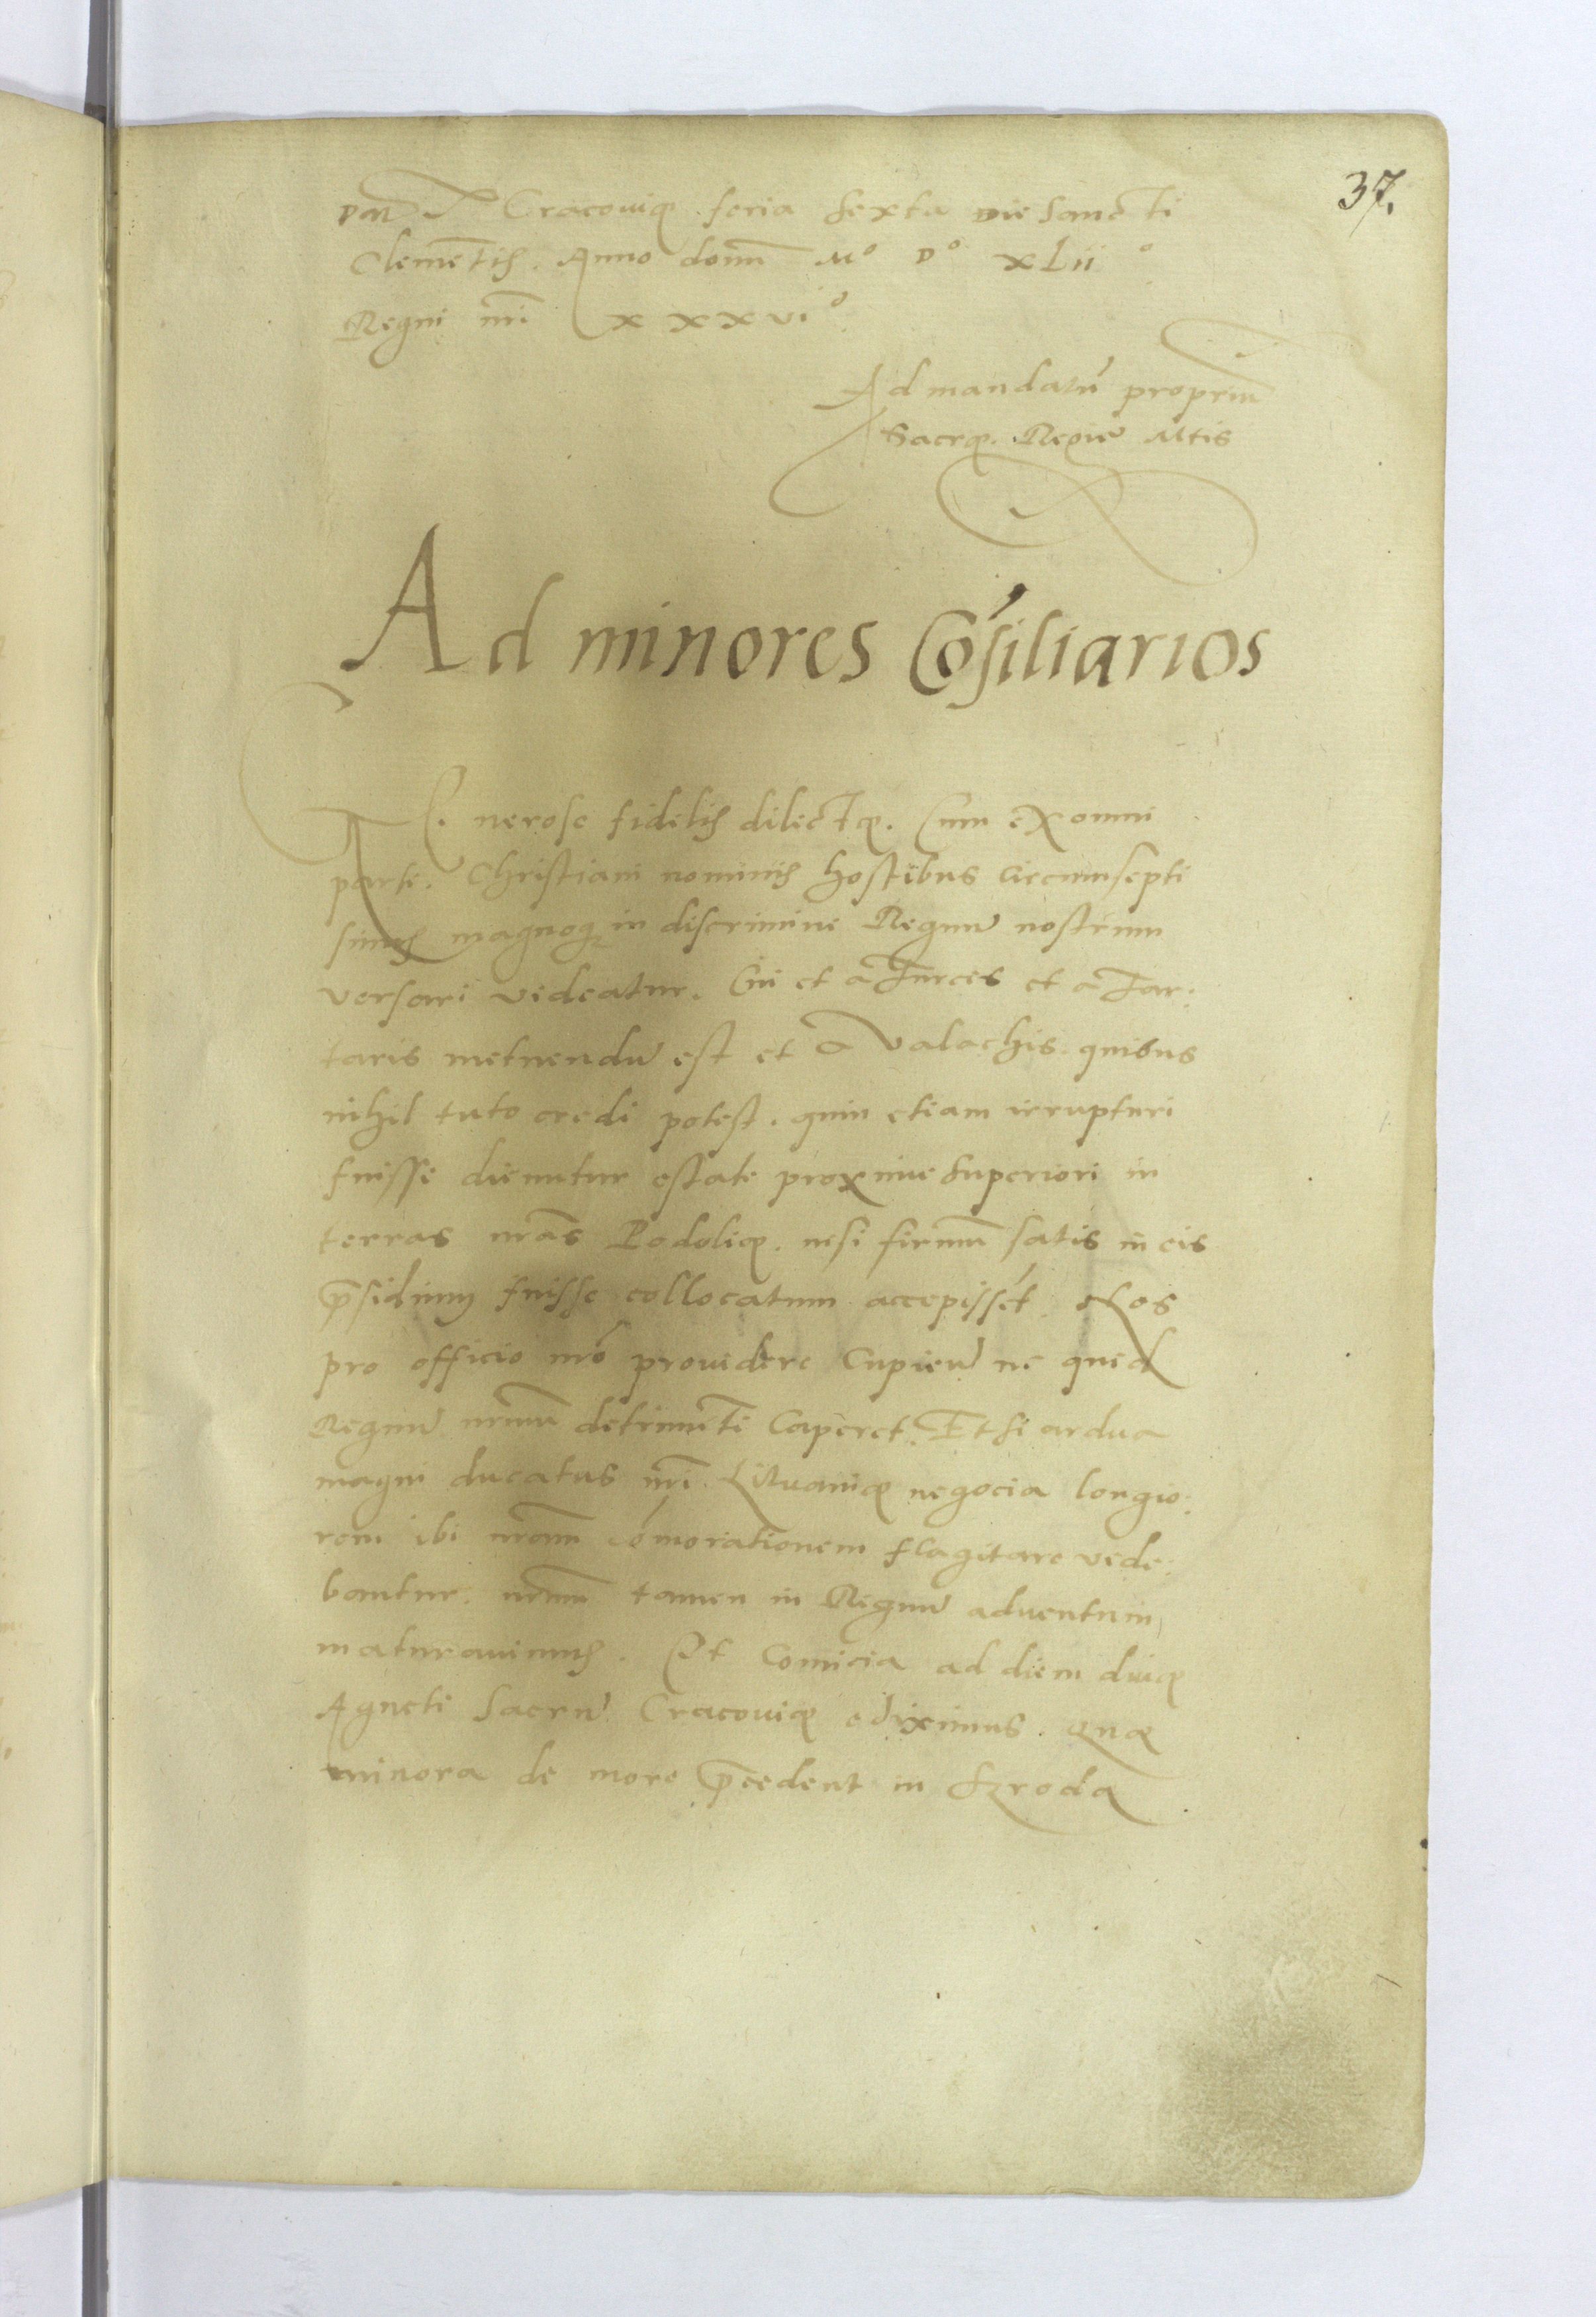 37.
Dat Cracouię feria sexta Die Sancti
Clemētis. Anno domī Mº Dº xLii º
Regni nri̅ xxxviº
Ad mandatū propriu̅
Sacrę. Regie Mtis
Ad minores Cōsiliarios
Generose fidelis dilectę. Cum ex omni
parte. Christiani nominis hostibus circumsepti
simus magnoq; in discrimine Regnū nostrum
versari videatur. Cū et a Turcis et a Tar:
taris metuendū est et a Valachis. quibus
nihil tuto credi potest. quin etiam irrupturi
fuisse dicuntur estate proxime superiori in
terras nr̄as Podolię. nisi firmū satis in eis
p̄sidium fuisse collocatum accepissēt. Nos
pro officio nr̄o prouidere cupieñ ne quid
Regnū nr̄um detrimēti caperet. Etsi ardua
magni ducatus nr̄i. Lituanię negocia longio:
rem ibi nr̄am cōmorationem flagitare vide:
bantur. nr̄um tamen in Regnū aduentum,
maturauimus. Et Comicia ad diem diuę
Agneti Sacrū. Cracouię ediximus. Quę
minora de more p̄cedent in Szroda